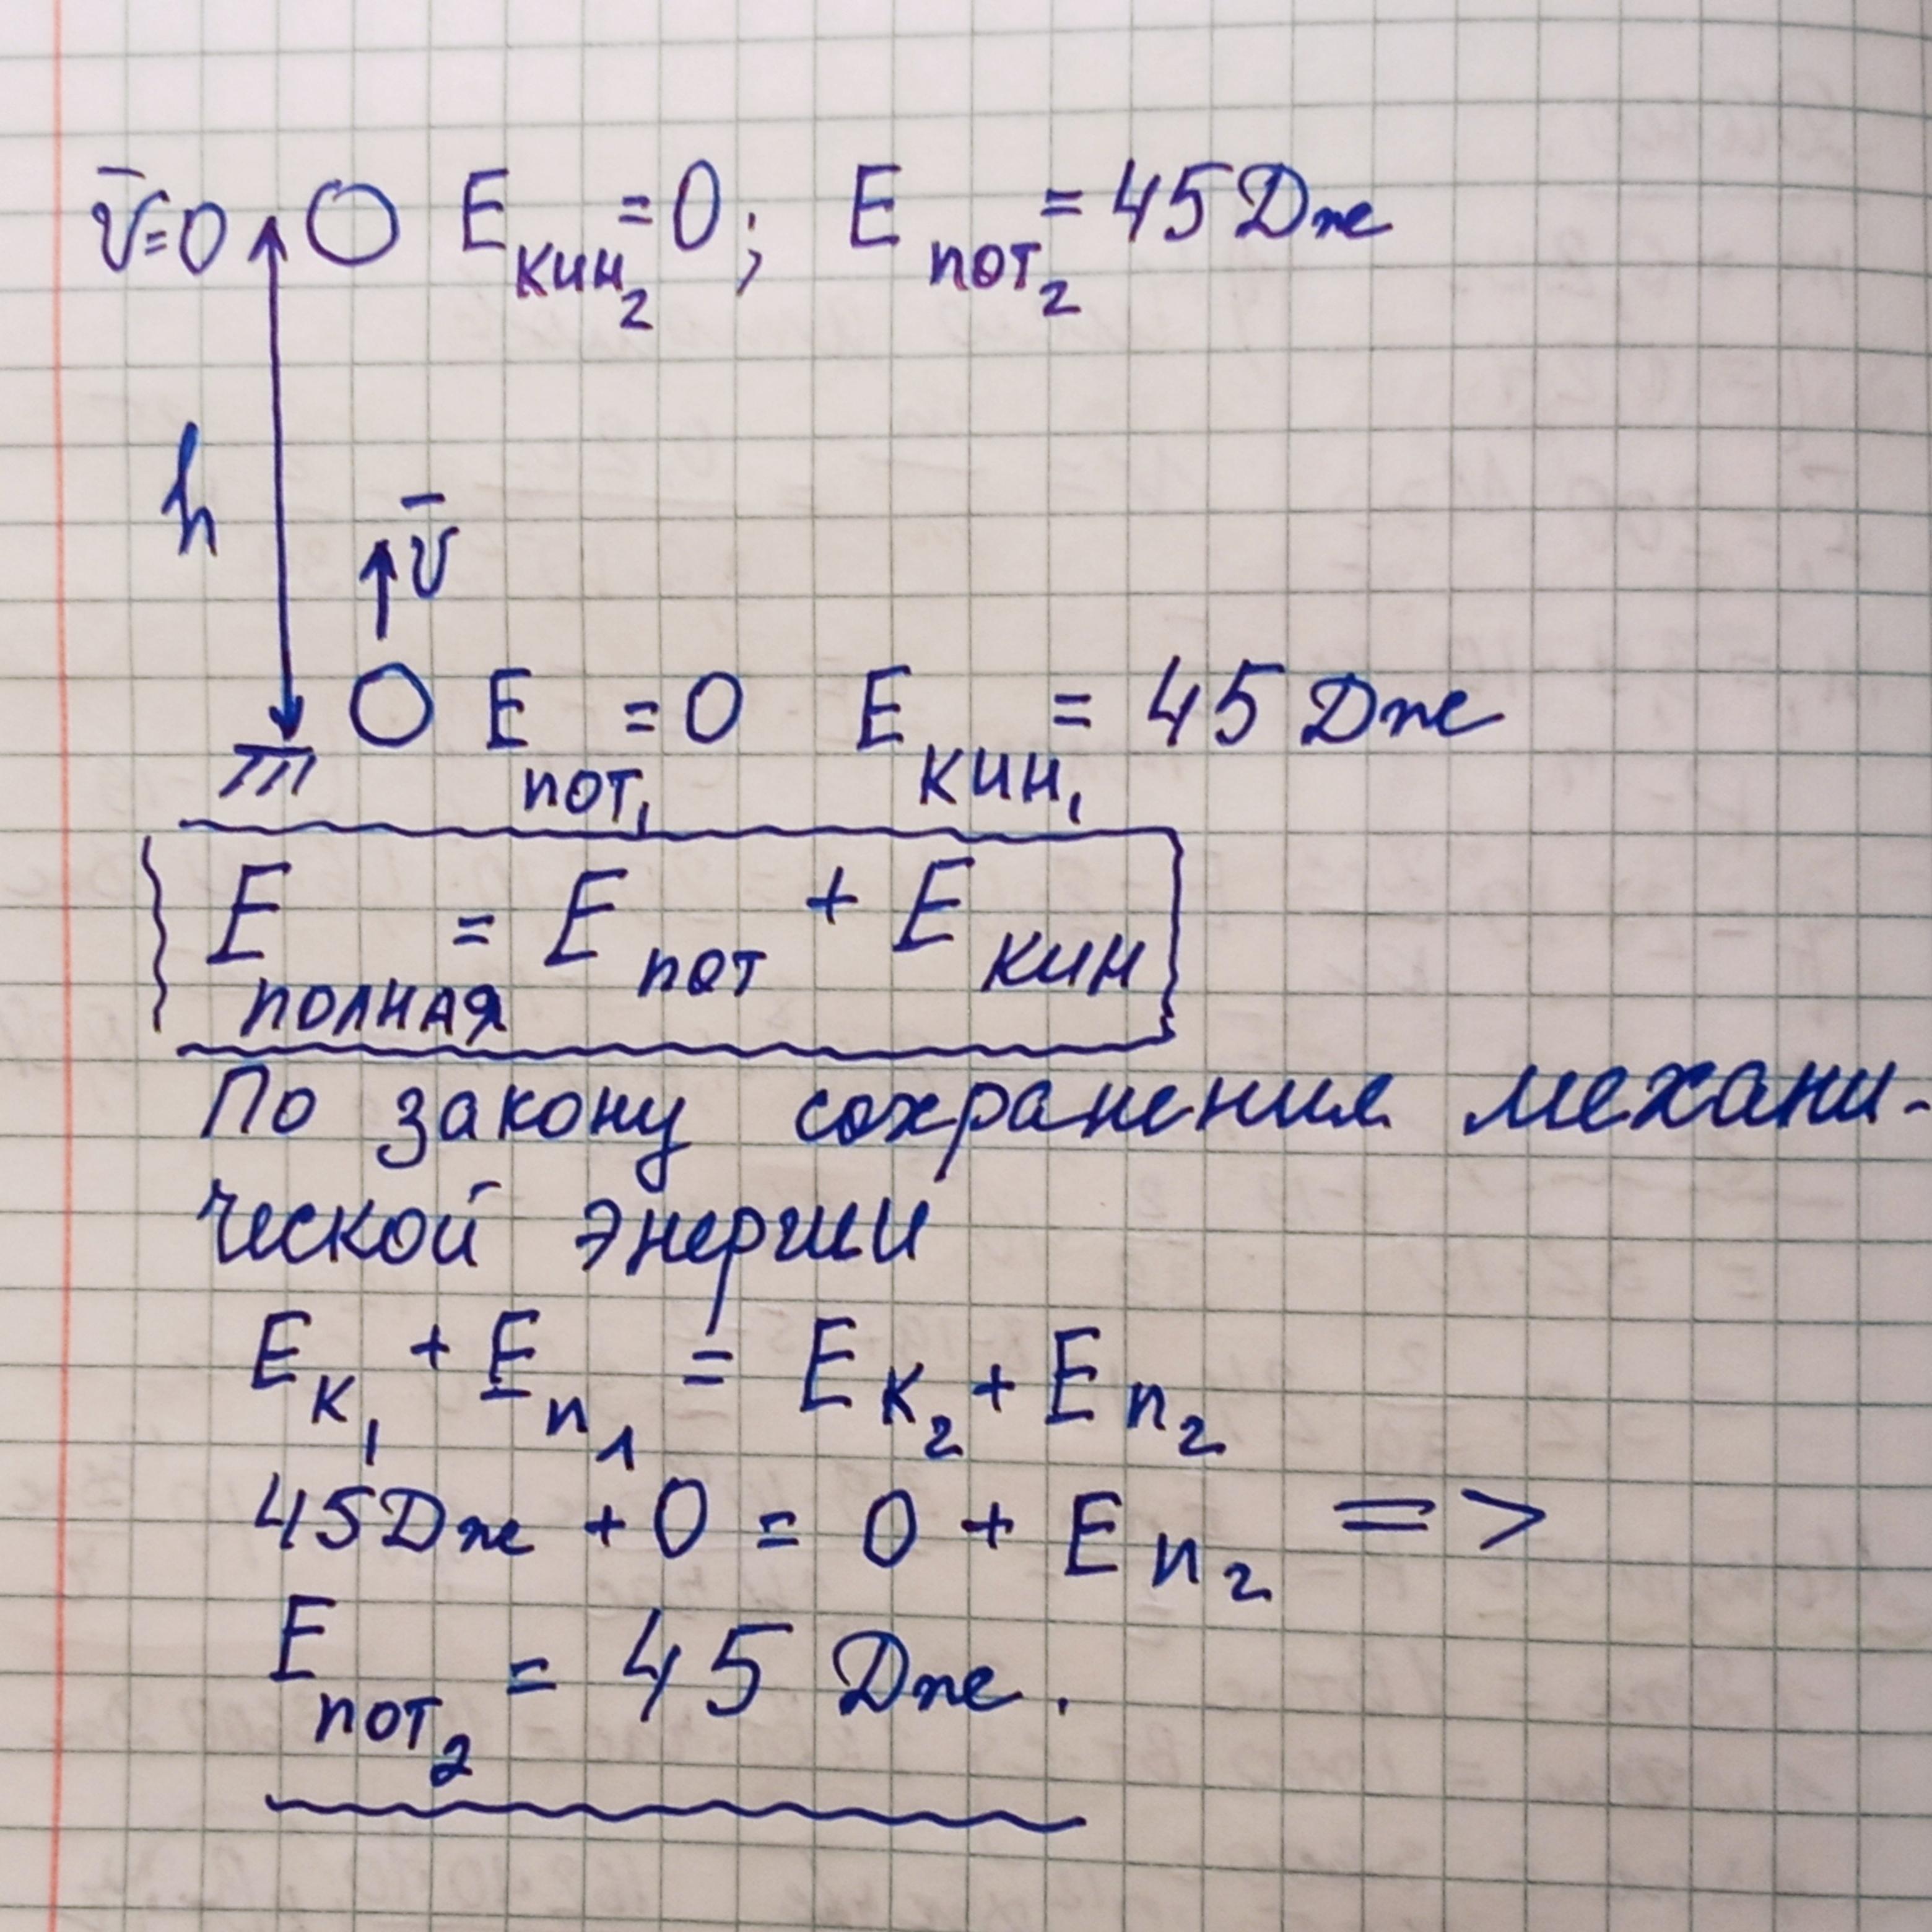 v̄=0 E кин₂ = 0; E пот₂ = 45 Дж
h
v̄
E пот₁ = 0 E кин₁ = 45 Дж
E полная = E пот + E кин
По закону сохранения механи-
ческой энергии
E к₁ + E п₁ = E к₂ + E п₂
45 Дж + 0 = 0 + E п₂ =>
E пот₂ = 45 Дж.